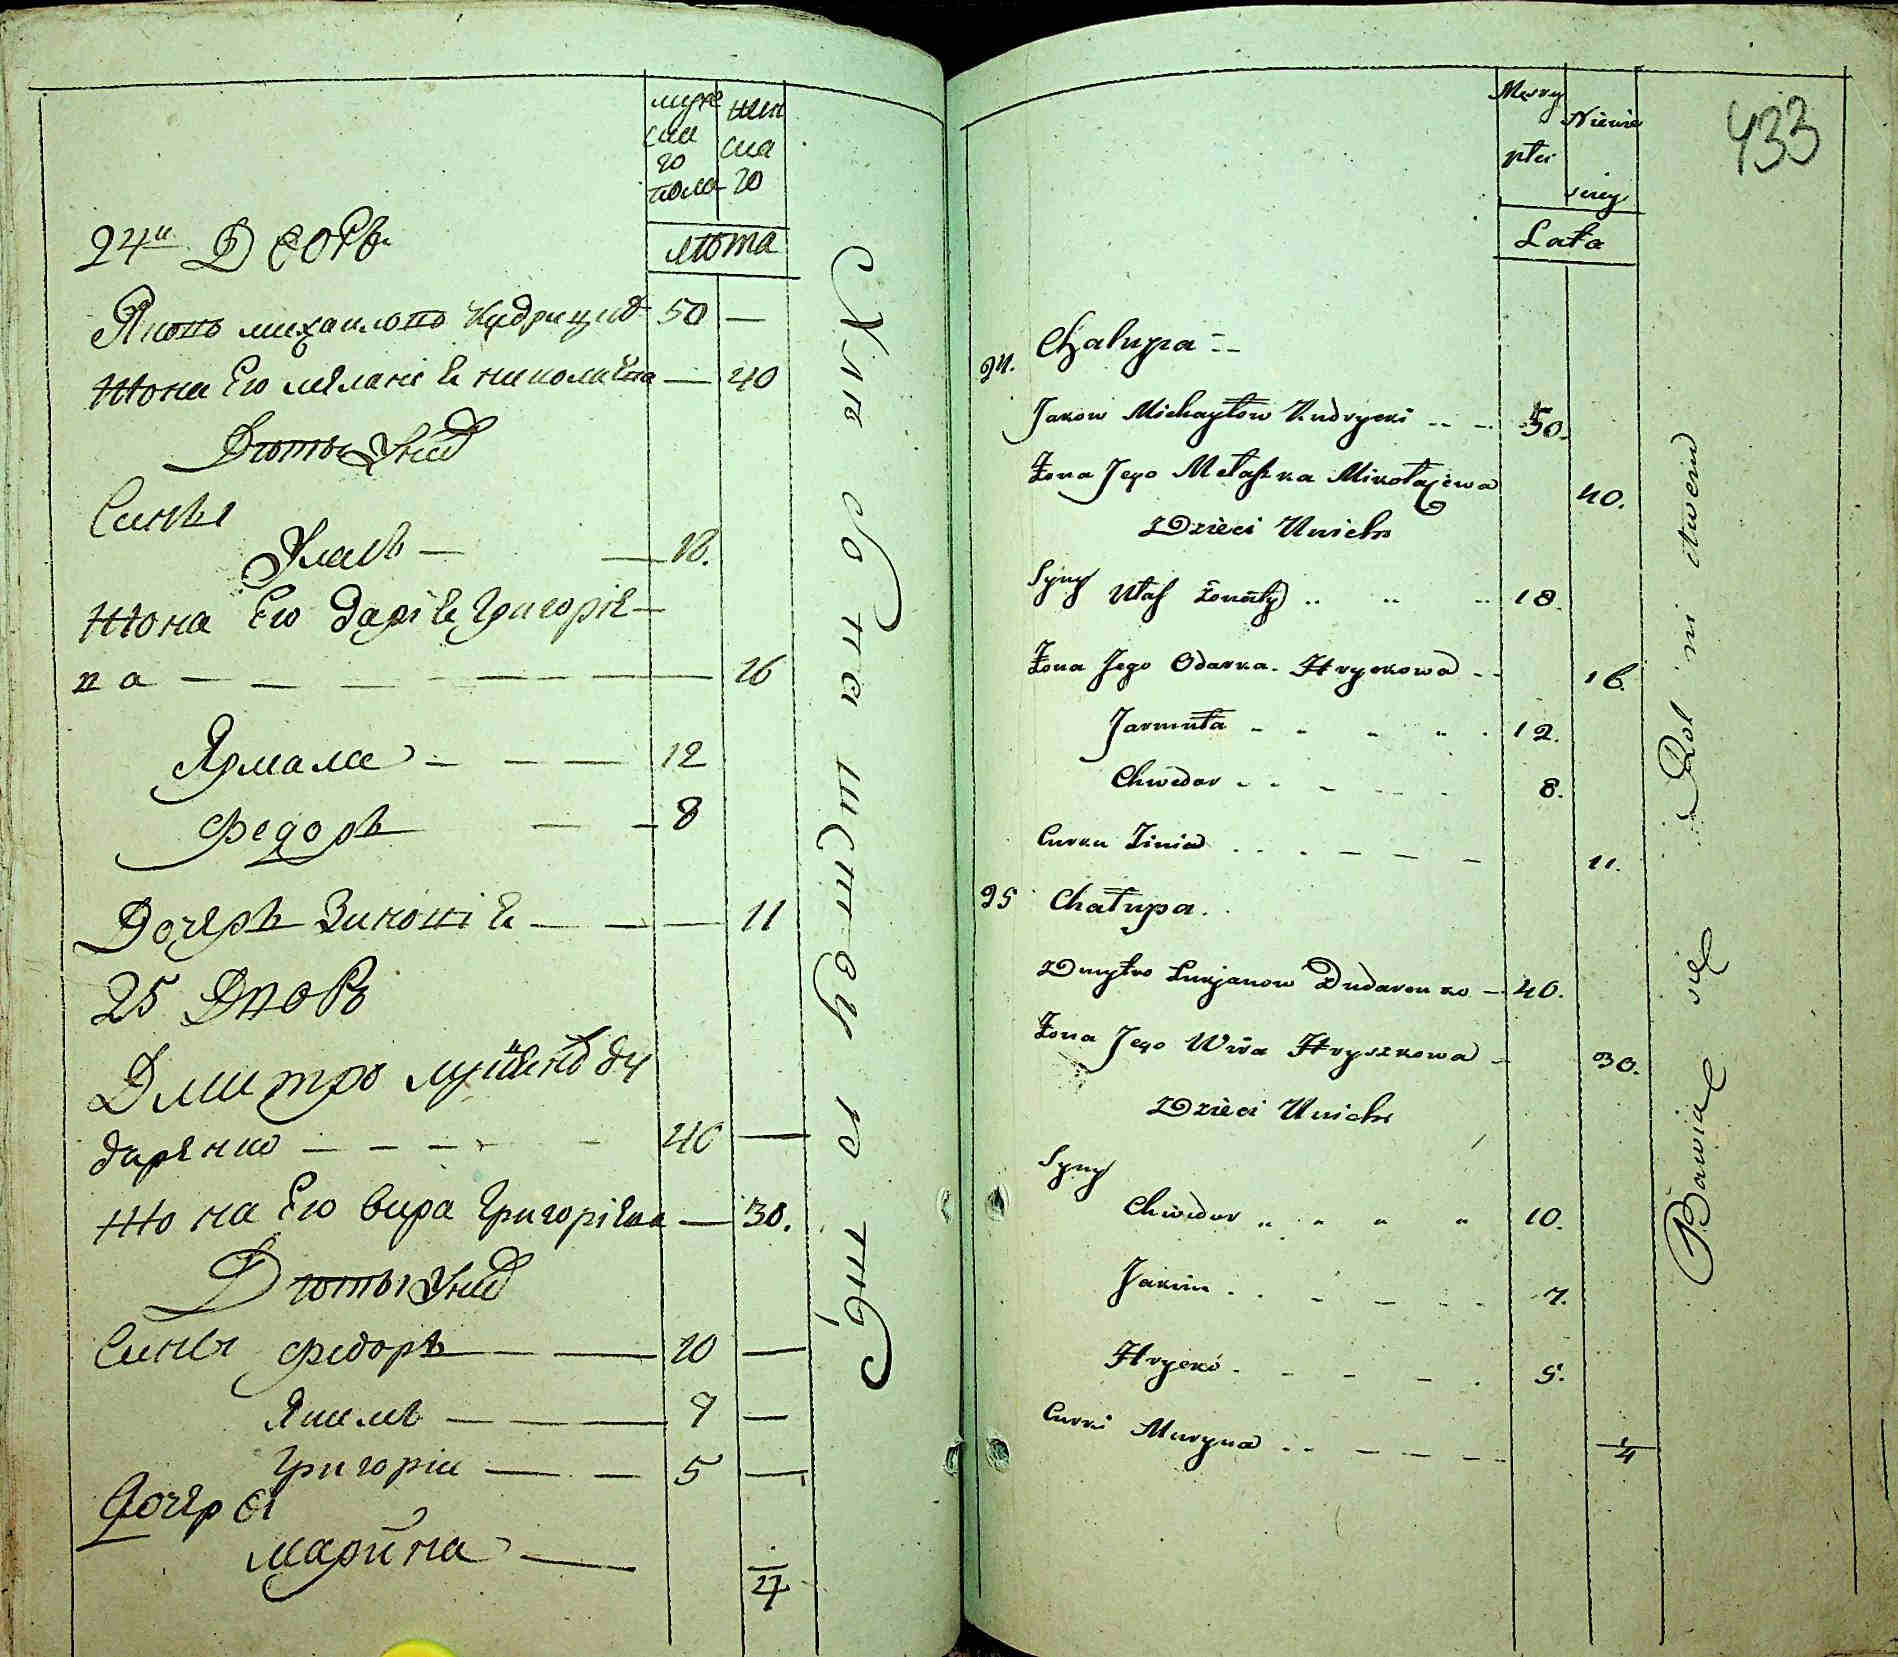 муже ска го пола
жен ска го
лѣта
24й Дворъ
Яковъ михаиловъ Кудрицкій 50 —
жона Его меланія николаевна — 40
Дѣты Уних
Сины
Уласъ — — 18.
жона Его дарія григоріе-
вна — — — — — — 16
Ярмола — — — 12
Федоръ — — 8
Дочеръ Зиновія — — — 11
25 Дворъ
Дмитро лукіянов ду
даренко — — — — 40 —
жона Его вира григоріевна — 30.
Дѣты Уних
Сины федоръ — — 10 —
Якимъ — — — 7 —
григоріи — — 5 —
Дочери
марина — 4
Хлебопашествуютъ
433
Męzky płci
Niewie sciey
Lata
24. Chałupa
Jakow Michayłow Kudrycki 50.
Żona Jego Małaszka Mikołajewa 40.
Dzieci Unich
Syny Ułas żonaty 18.
Żona Jego Odarka Hryckowa 16.
Jarmuła 12.
Chwedor 8.
Curka Zinia 11.
25 Chałupa.
Dmytro Lukjanow Dudarenko — 40.
Żona Jego Wira Hryszkowa 30.
Dzieci Unich
Syny
Chwedor 10.
Jakim 7.
Hrycko 5.
Curki Maryna 4
Bawią się Rolnictwem